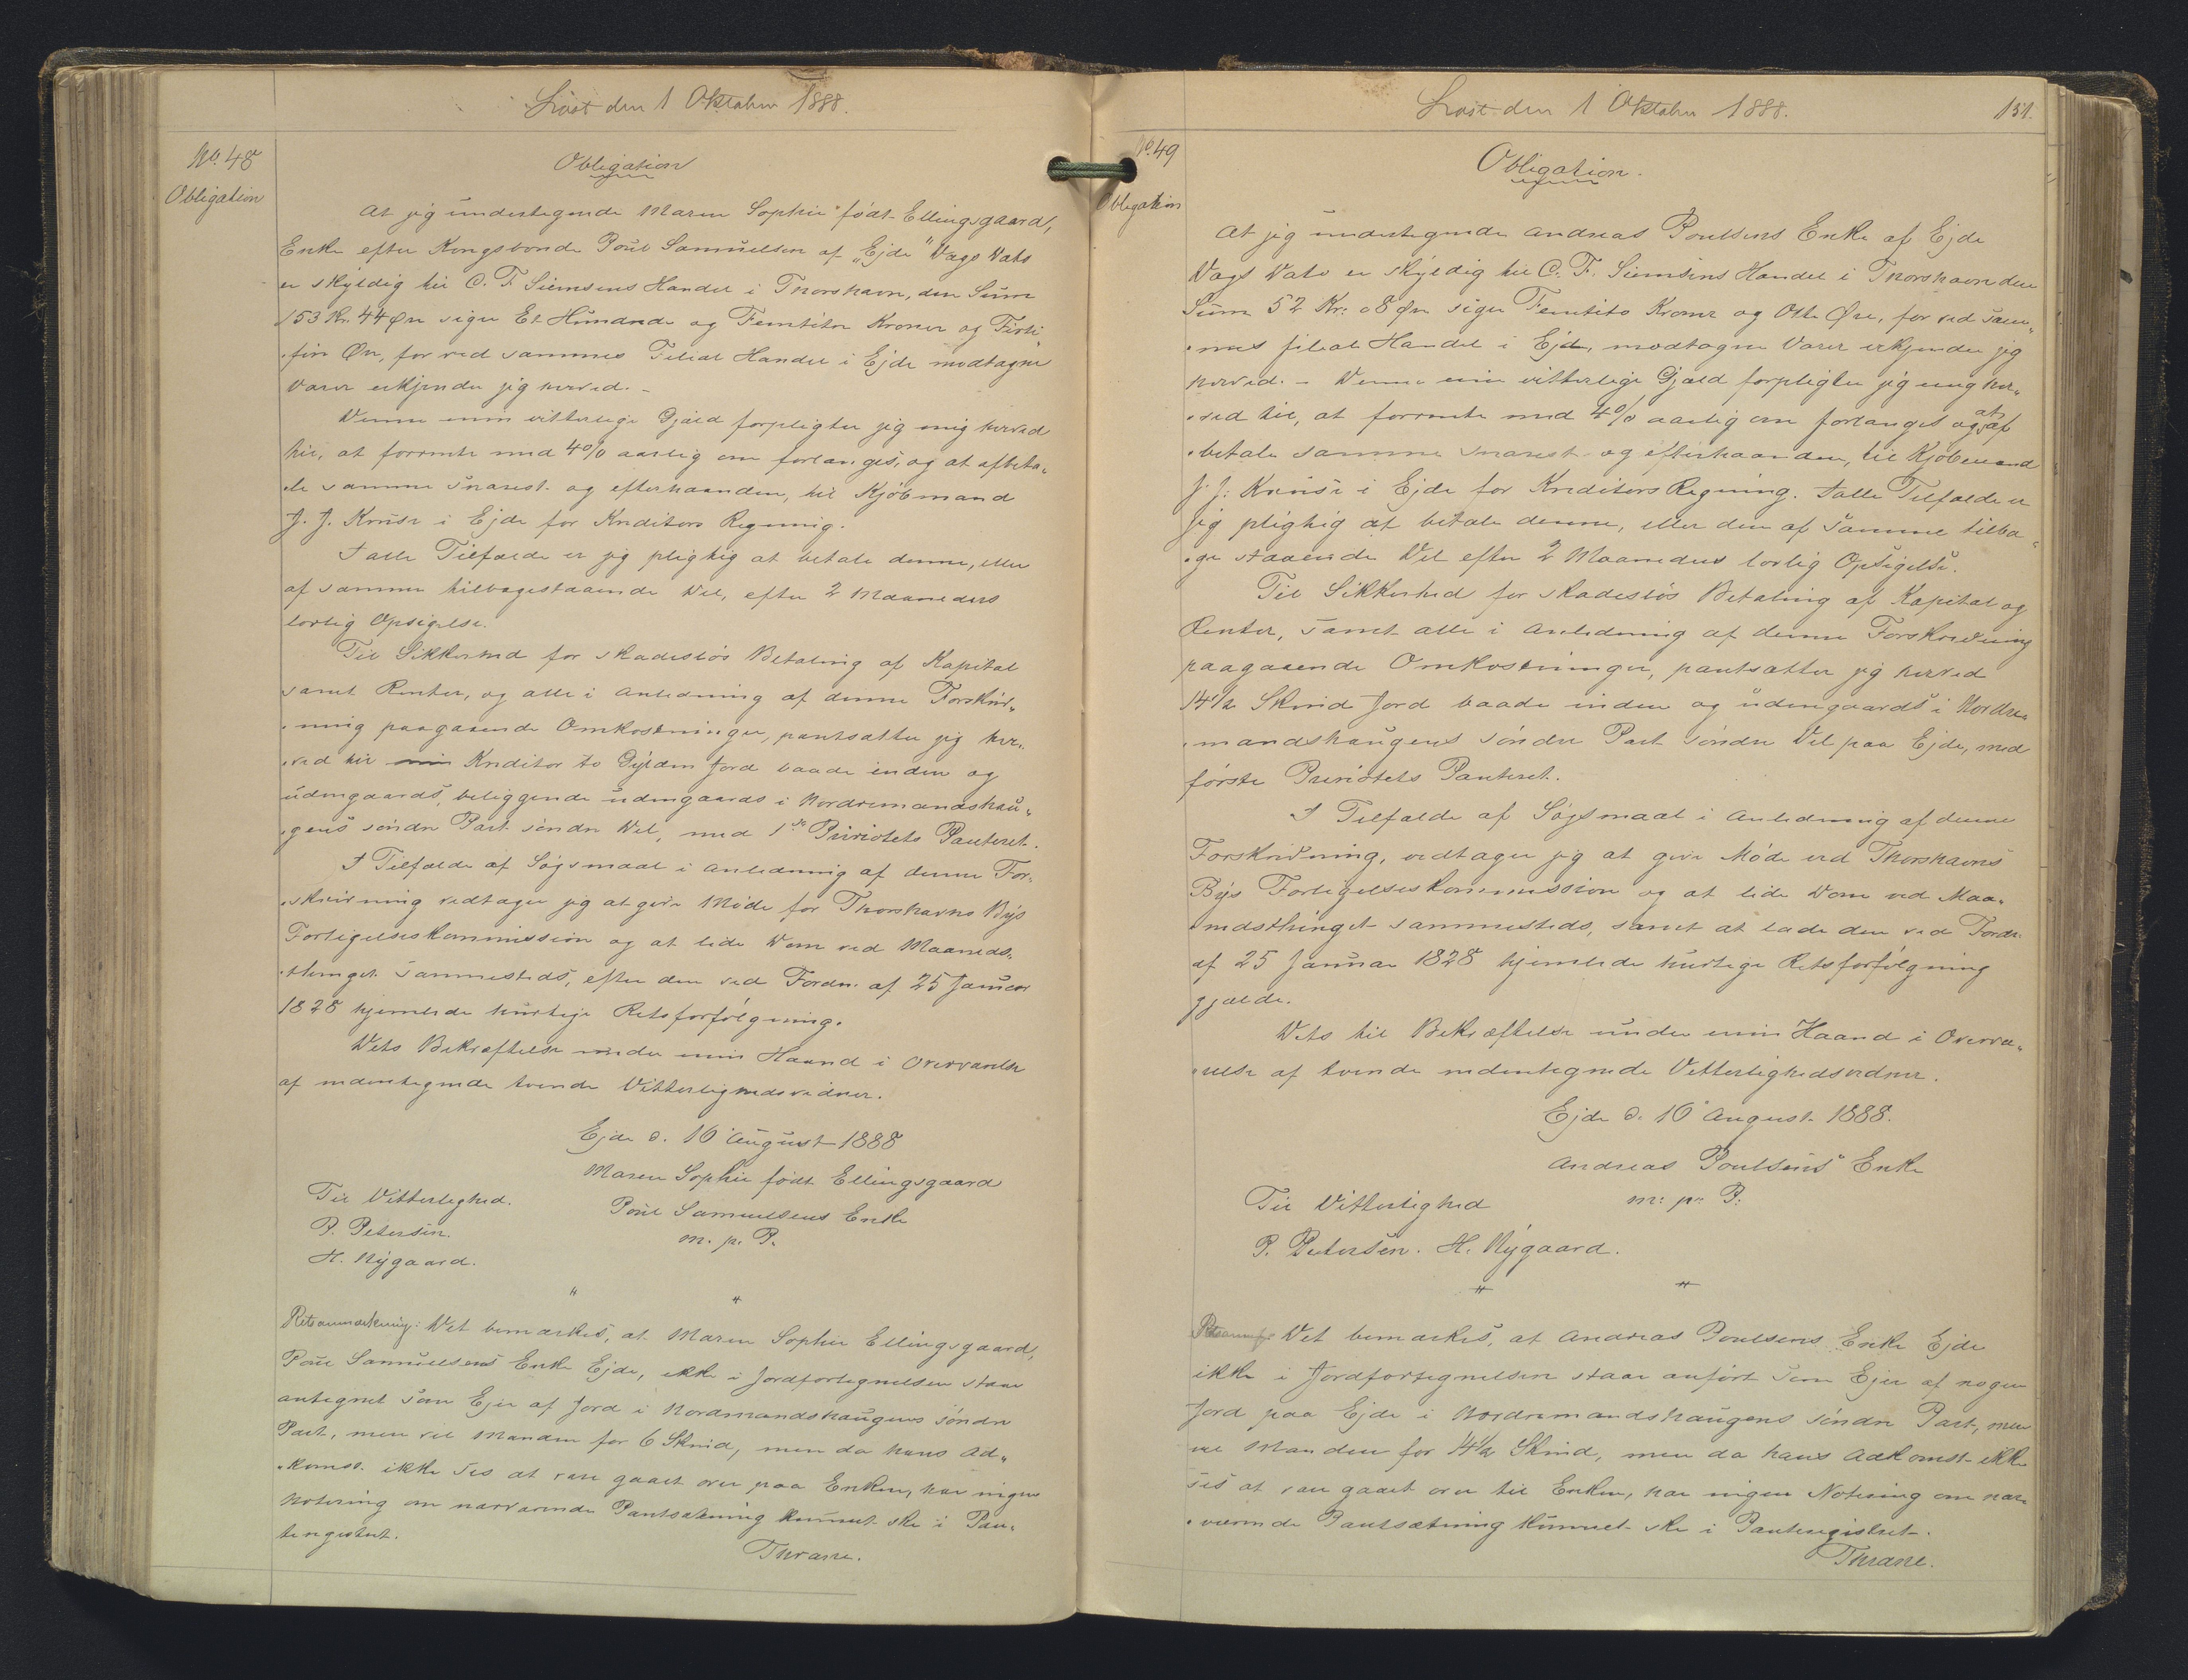 Læst den 1 Oktober 1888.
No. 48
Obligation
Obligation
At jeg undertegnede Maren Sophie født Ellingsgaard,
Enke efter Kongsbonde Poul Samuelsen af "Ejde" Vags Vats
er skyldig til C. F. Siemsens Handel i Thorshavn, den Sum
153 Kr. 44 Øre siger Et Hundrede og Femtitre Kroner og Firti
fire Øre, for ved sammes Filial Handel i Ejde modtagne
Varer erkjender jeg herved. -
Denne min vitterlige Gjæld forpligter jeg mig herved
til, at forrente med 4% aarlig om forlanges, og at afbeta„
„le samme snarest og efterhaanden, til Kjøbmand
J. J. Kruse i Ejde for Kreditors Regning.
I alle Tilfælde er jeg pligtig at betale denne, eller
af samme tilbagestaaende Del, efter 2 Maaneders
lovlig Opsigelse.
Til Sikkerhed for skadesløs Betaling af Kapital
samt Renter, og alle i Anledning af denne Forskriv„
„ning paagaaende Omkostninger, pantsætter jeg her„
„ved til min Kreditor to Gylden Jord baade inden og
udengaards, beliggende udengaards i Nordremandshau„
„gens søndre Part søndre Del, med 1ste Prioritets Panteret.
I Tilfælde af Søgsmaal i Anledning af denne For„
„skrivning vedtager jeg at give Møde for Thorshavns Bys
Forligelseskommission og at lide Dom ved Maaneds„
„thinget sammesteds, efter den ved Fordn. af 25 Januar
1828 hjemlede hurtige Retsforfølgning.
Dets Bekræftelse under min Haand i Overværelse
af medentegnede tvende Vitterlighedsvidner.
Ejde d. 16 August 1888
Maren Sophie født Ellingsgaard
Poul Samuelsens Enke
m. p. P.
Til Vitterlighed.
P. Petersen.
H. Nygaard.
Retsanmærkning: Det bemærkes, at Maren Sophie Ellingsgaard,
Poul Samuelsens Enke Ejde, ikke i Jordfortegnelsen staar
antegnet som Ejer af Jord i Nordmandshaugens søndre
Part, men vel Manden for 6 Skind, men da hans Ad„
„komst ikke ses at være gaaet over paa Enken, har ingen
Notering om nærværende Pantsætning kunnet ske i Pan„
teregistret.
Thrane.
Læst den 1 Oktober 1888.
151.
No. 49
Obligation
Obligation.
At jeg undertegnede Andreas Poulsens Enke af Ejde
Vags Vats er skyldig til C. F. Siemsens Handel i Thorshavn den
Sum 52 Kr. 08 Øre siger Femtito Kroner og Otte Øre, for ved sam„
„mes filial Handel i Ejde, modtagne Varer erkjender jeg
herved. - Denne min vitterlige Gjæld forpligter jeg mig her„
„ved til, at forrente med 4% aarlig om forlanges og at af
„betale samme snarest og efterhaanden, til Kjøbmand
J. J. Kruse i Ejde for Kreditors Regning. I alle Tilfælde er
jeg pligtig at betale denne, eller den af samme tilba„
„ge staaende Del efter 2 Maaneders lovlig Opsigelse.
Til Sikkerhed for skadesløs Betaling af Kapital og
Renter, samt alle i Anledning af denne Forskrivning
paagaaende Omkostninger, pantsætter jeg herved
14½ Skind Jord baade inden og udengaards i Nordre„
„mandshaugens søndre Part søndre Del paa Ejde, med
første Prioritets Panteret.
I Tilfælde af Søgsmaal i Anledning af denne
Forskrivning, vedtager jeg at give Møde ved Thorshavns
Bys Forligelseskommission og at lide Dom ved Maa„
„nedsthinget sammesteds, samt at lade den ved Fordn.
af 25 Januar 1828 hjemlede hurtige Retsforfølgning
gjælde.
Dets til Bekræftelse under min Haand i Overvæ„
„relse af tvende medentegnede Vetterlighedsvidner.
Ejde d. 16 August 1888.
Andreas Poulsens Enke
m. p. P.
Til Vitterlighed
P. Petersen. H. Nygaard.
Retsanm Det bemærkes, at Andreas Poulsens Enke Ejde
ikke i Jordfortegnelsen staar anført som Ejer af nogen
Jord paa Ejde i Nordremandshaugens søndre Part, men
vel Manden for 14½ Skind, men da hans Adkomst ikke
ses at være gaaet over til Enken, har ingen Notering om nær
„værende Pantsætning kunnet ske i Panteregistret.
Thrane.